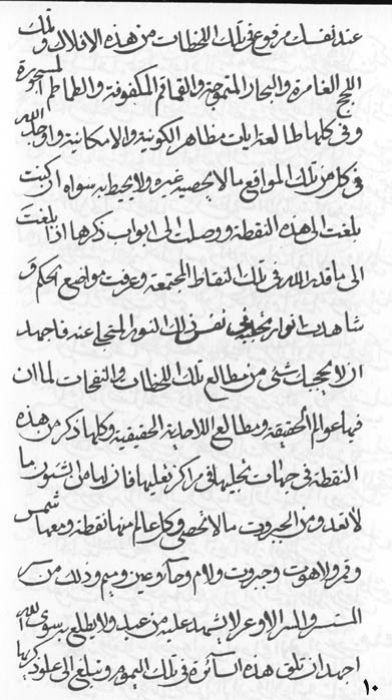 عند نفسك مرفوع عن تلك اللحظات من هذه الافلاك وتلك
اللجج الغامرة والبحار المتموجة والقماقم المكفوفة والطماطم المسجورة
وفى كلها طالعة ايات مظاهر الكونية والامكانية واوجد الله
فى كل من تلك المواقع مالا يحصيه غيره ولا يحيط به سواه ان كنت
بلغت الى هذه النقطة ووصلت الى ابواب ذكرها اذا بلغت
الى ما قدر الله فى تلك النقاط المجتمعة وعرفت مواضع الحكم و
شاهدت انوار نفس تلك النور المتجلى عنده فاجهد
ان لا يحجبك شئ من مطالع تلك اللحظات والنفحات لما ان
فيها عوالم الحقيقة ومطالع اللاحدية الحقيقية وكلما ذكر من هذه
النقطة فى جهات تجليها فى مراكز تعليها فان لها من الشئون ما
لا تعد ومن الجبروت مالا يحصى وكل عالم منها نقطة ومعها شمس
وقمر ولاهوت وجبروت ولام وحاء وعين وميم وذلك من سر
المستسر والسر الاوعر لا يشهد عليه من عبد ولا يطلع به سوى الله
اجهد ان تلق هذه السائرة فى تلك اليموم وتبلغ الى علو ذكرها
١٠